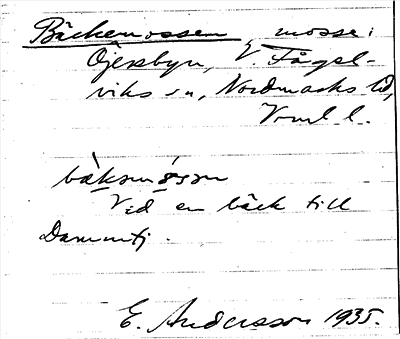 Bäckemossen, mosse i
Öjersbyn, V. Fågel-
viks sn, Nordmarks hd,
Vrml l.
bäkəmòsən
Vid en bäck till
E. Andersson 1935.